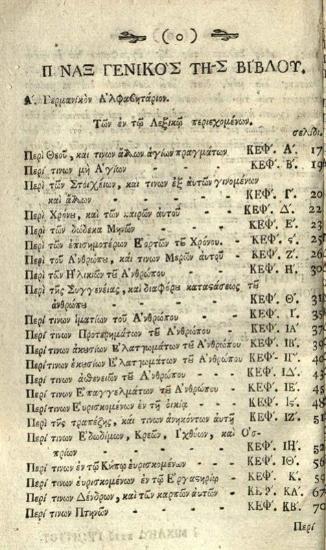 ( o )
Π ΝΑΞ ΓΕΝΙΚΟΣ ΤΗΣ ΒΙΒΛΟΥ.
Α. Γερμανικὸν Α'λφαβητάριον.
Τῶν ἐν τῷ Λεξικῷ περιεχομένων.
σελίδι.
Περὶ Θεοῦ, καὶ τινων ἄλλων ἁγίων πραγμάτων ΚΕΦ. Α'. 17
Περί τινων μὴ Α'γίων - - - ΚΕΦ. Β'. 19
Περὶ τῶν Στοιχείων, καί τινων ἐξ αὐτῶν γινομένων
καὶ ἄλλων - - - ΚΕΦ. Γ'. 20
Περὶ Χρόνου, καὶ τῶν καιρῶν αὐτοῦ - ΚΕΦ. Δ'. 22
Περὶ τῶν δώδεκα Μηνῶν - - - ΚΕΦ. Ε'. 23
Περὶ τῶν ἐπισημοτέρων Ε'ορτῶν τοῦ Χρόνου. ΚΕΦ. ς'. 25
Περὶ τοῦ Α'νθρώπου, καί τινων Μερῶν αὐτοῦ ΚΕΦ. Ζ'. 26
Περὶ τῶν Η'λικιῶν τοῦ Α'νθρώπου - ΚΕΦ. Η'. 30
Περὶ τῆς Συγγενείας, καὶ διαφόρου καταστάσεως τοῦ
ἀνθρώπου - - - ΚΕΦ. Θ'. 31
Περί τινων ἱματίων τοῦ Α'νθρώπου - ΚΕΦ. Ι'. 35
Περί τινων Προτερημάτων τοῦ Α'νθρώπου ΚΕΦ. ΙΑ' 37
Περί τινων ἀκουσίων Ε'λατωμάτων τοῦ Α'νθρώπου ΚΕΦ. ΙΒ'. 39
Περί τινων ἑκουσίων Ε'λατωμάτων τοῦ Α'νθρώπου ΚΕΦ. ΙΓ'. 40
Περί τινων ἀσθενειῶν τοῦ Α'νθρώπου - ΚΕΦ. ΙΔ'. 43
Περί τινων Ε'παγγελμάτων τοῦ Α'νθρώπου ΚΕΦ. ΙΕ'. 45
Περί τινων Εὑρισκομένων ἐν τῇ οἰκίᾳ - ΚΕΦ. Ις'. 48
Περὶ τῆς τραπέζης, καί τινων ἀνηκόντων αὐτῇ ΚΕΦ. ΙΖ'. 51
Περί τινων Ε'δωδίμων, Κρεῶν, Ι'χθύων, καὶ Ο'σ-
πρίων - - - ΚΕΦ. ΙΗ'.
Περί τινων ἐν τῷ Κήπῳ εὑρισκομένων - ΚΕΦ. ΙΘ'.
Περί τινων εὑρισκομένων ἐν τῷ Ε'ργαστηρίῳ ΚΕΦ. Κ'.
Περί τινων Δένδρων, καὶ τῶν καρπῶν αὐτῶν - ΚΕΦ. ΚΑ'. 67
Περί τινων Πτηνῶν - - - ΚΕΦ. ΚΒ'. 70
Περί